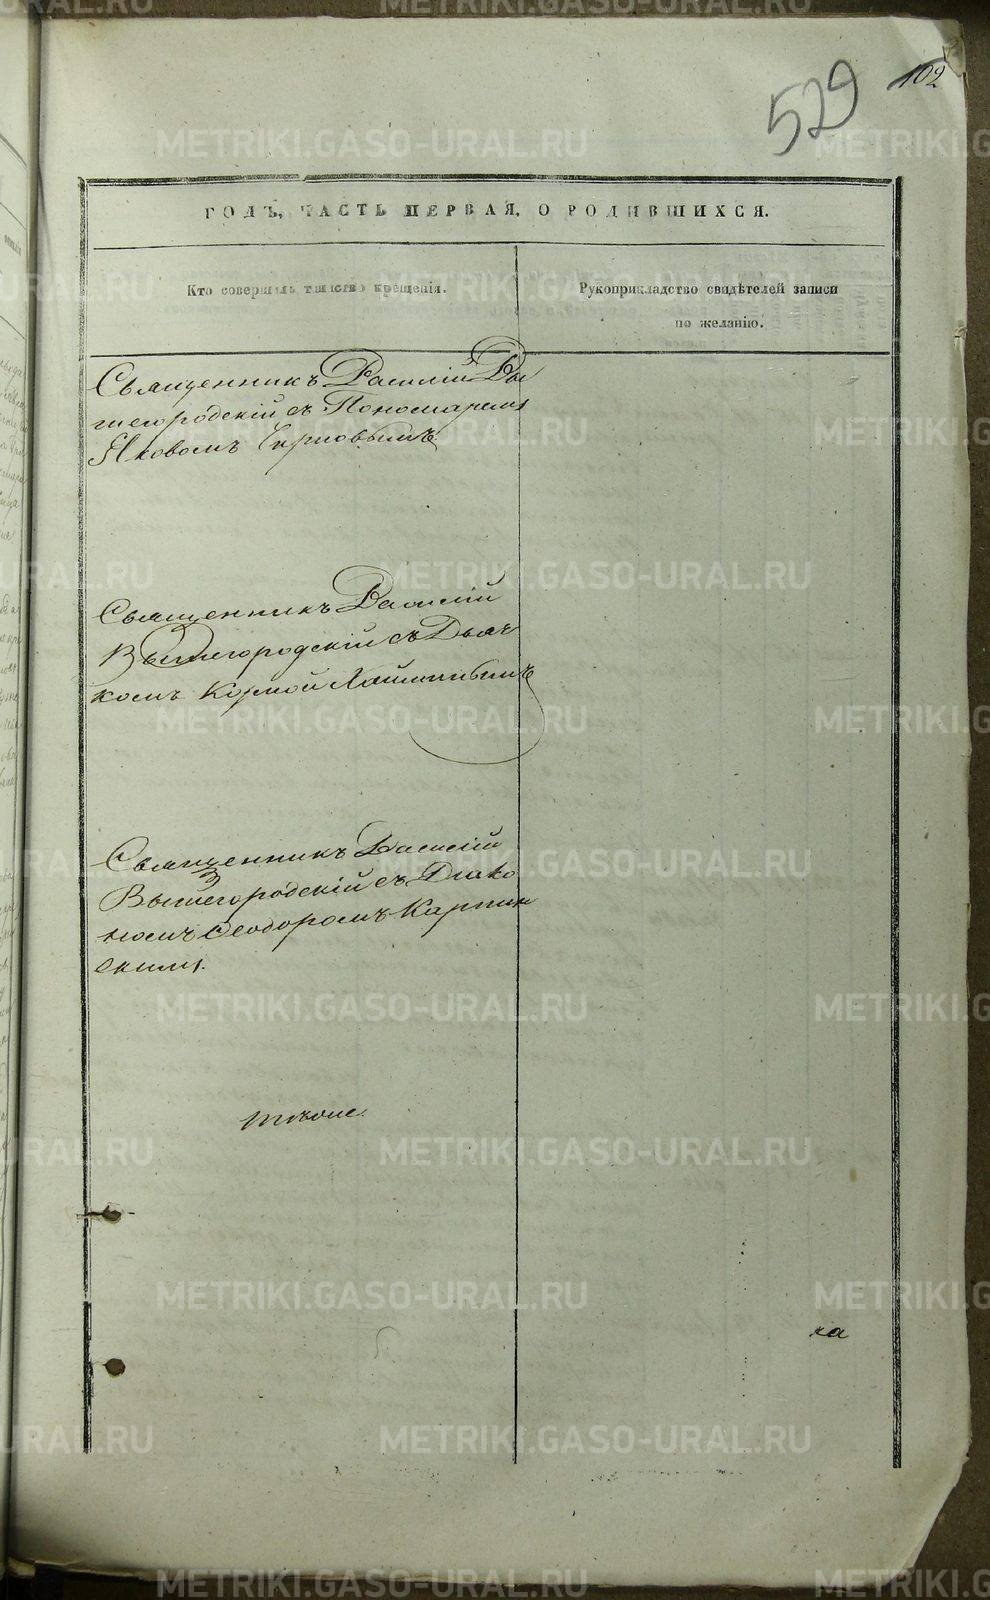 529
102
ГОДЪ, ЧАСТЬ ПЕРВАЯ, О РОДИВШИХСЯ.
Кто совершалъ таинство крещенія.
Рукоприкладство свидѣтелей записи
по желанію.
Священникъ Василій Вы
шегородскій съ Пономаремъ
Яковомъ Черновымъ.
Священникъ Василій
Вышегородскій съ Дьяч
комъ Космой
Священникъ Василій
Вышегородскій съ Діако
номъ Ѳеодоромъ Карпин
скимъ.
тѣже.
ка
METRIKI.GASO-URAL.RU